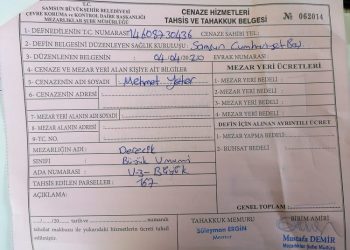 T.C.
SAMSUN BÜYÜKŞEHİR BELEDİYESİ
ÇEVRE KORUMA ve KONTROL DAİRE BAŞKANLIĞI
MEZARLIKLAR ŞUBE MÜDÜRLÜĞÜ
CENAZE HİZMETLERİ
TAHSİS ve TAHAKKUK BELGESİ
№ 062014
1-DEFNEDİLENİN T.C. NUMARASI: 14608730436 CENAZE SAHİBİ TEL:
2-DEFİN BELGESİNİ DÜZENLEYEN SAĞLIK KURULUŞU: Samsun Cumhuriyet Baş.
3-DÜZENLENEN DEFİN 04.04.2020 EVRAK NUMARASI:
4-CENAZE VE MEZAR YERİ ALAN KİŞİYE AİT BİLGİLER
5-CENAZENİN ADI SOYADI Mehmet Yeter
6-CENAZENİN ADRESİ :
7-MEZAR YERİ ALANIN ADI SOYADI
8-MEZAR YERİ ALANIN ADRESİ
9-TC. NO
MEZARLIĞIN ADI: Derecik
SINIFI Büyük Umumi
ADA NUMARASI U-3-Büyük
TAHSİS EDİLEN PARSELLER 167
AÇIKLAMA:
MEZAR YERİ ÜCRETLERİ
1-MEZAR YERİ BEDELİ :
2-MEZAR YERİ BEDELİ :
3-MEZAR YERİ BEDELİ :
4-MEZAR YERİ BEDELİ :
DEFİN İÇİN ALINAN AYRINTILI ÜCRET
1-MEZAR YAPMA BEDELİ :
2-RUHSAT BEDELİ :
GENEL TOPLAM :
TAHAKKUK MEMURU
Süleyman ERGİN
Memur
BİRİM AMİRİ
Mustafa DEMİR
Mezarlıklar Şefi
...../...../20..... tarih ve ..... sayılı
tahsilat makbuzu ile yukarıdaki hizmetlerin ücreti tahsil
edilmiştir.